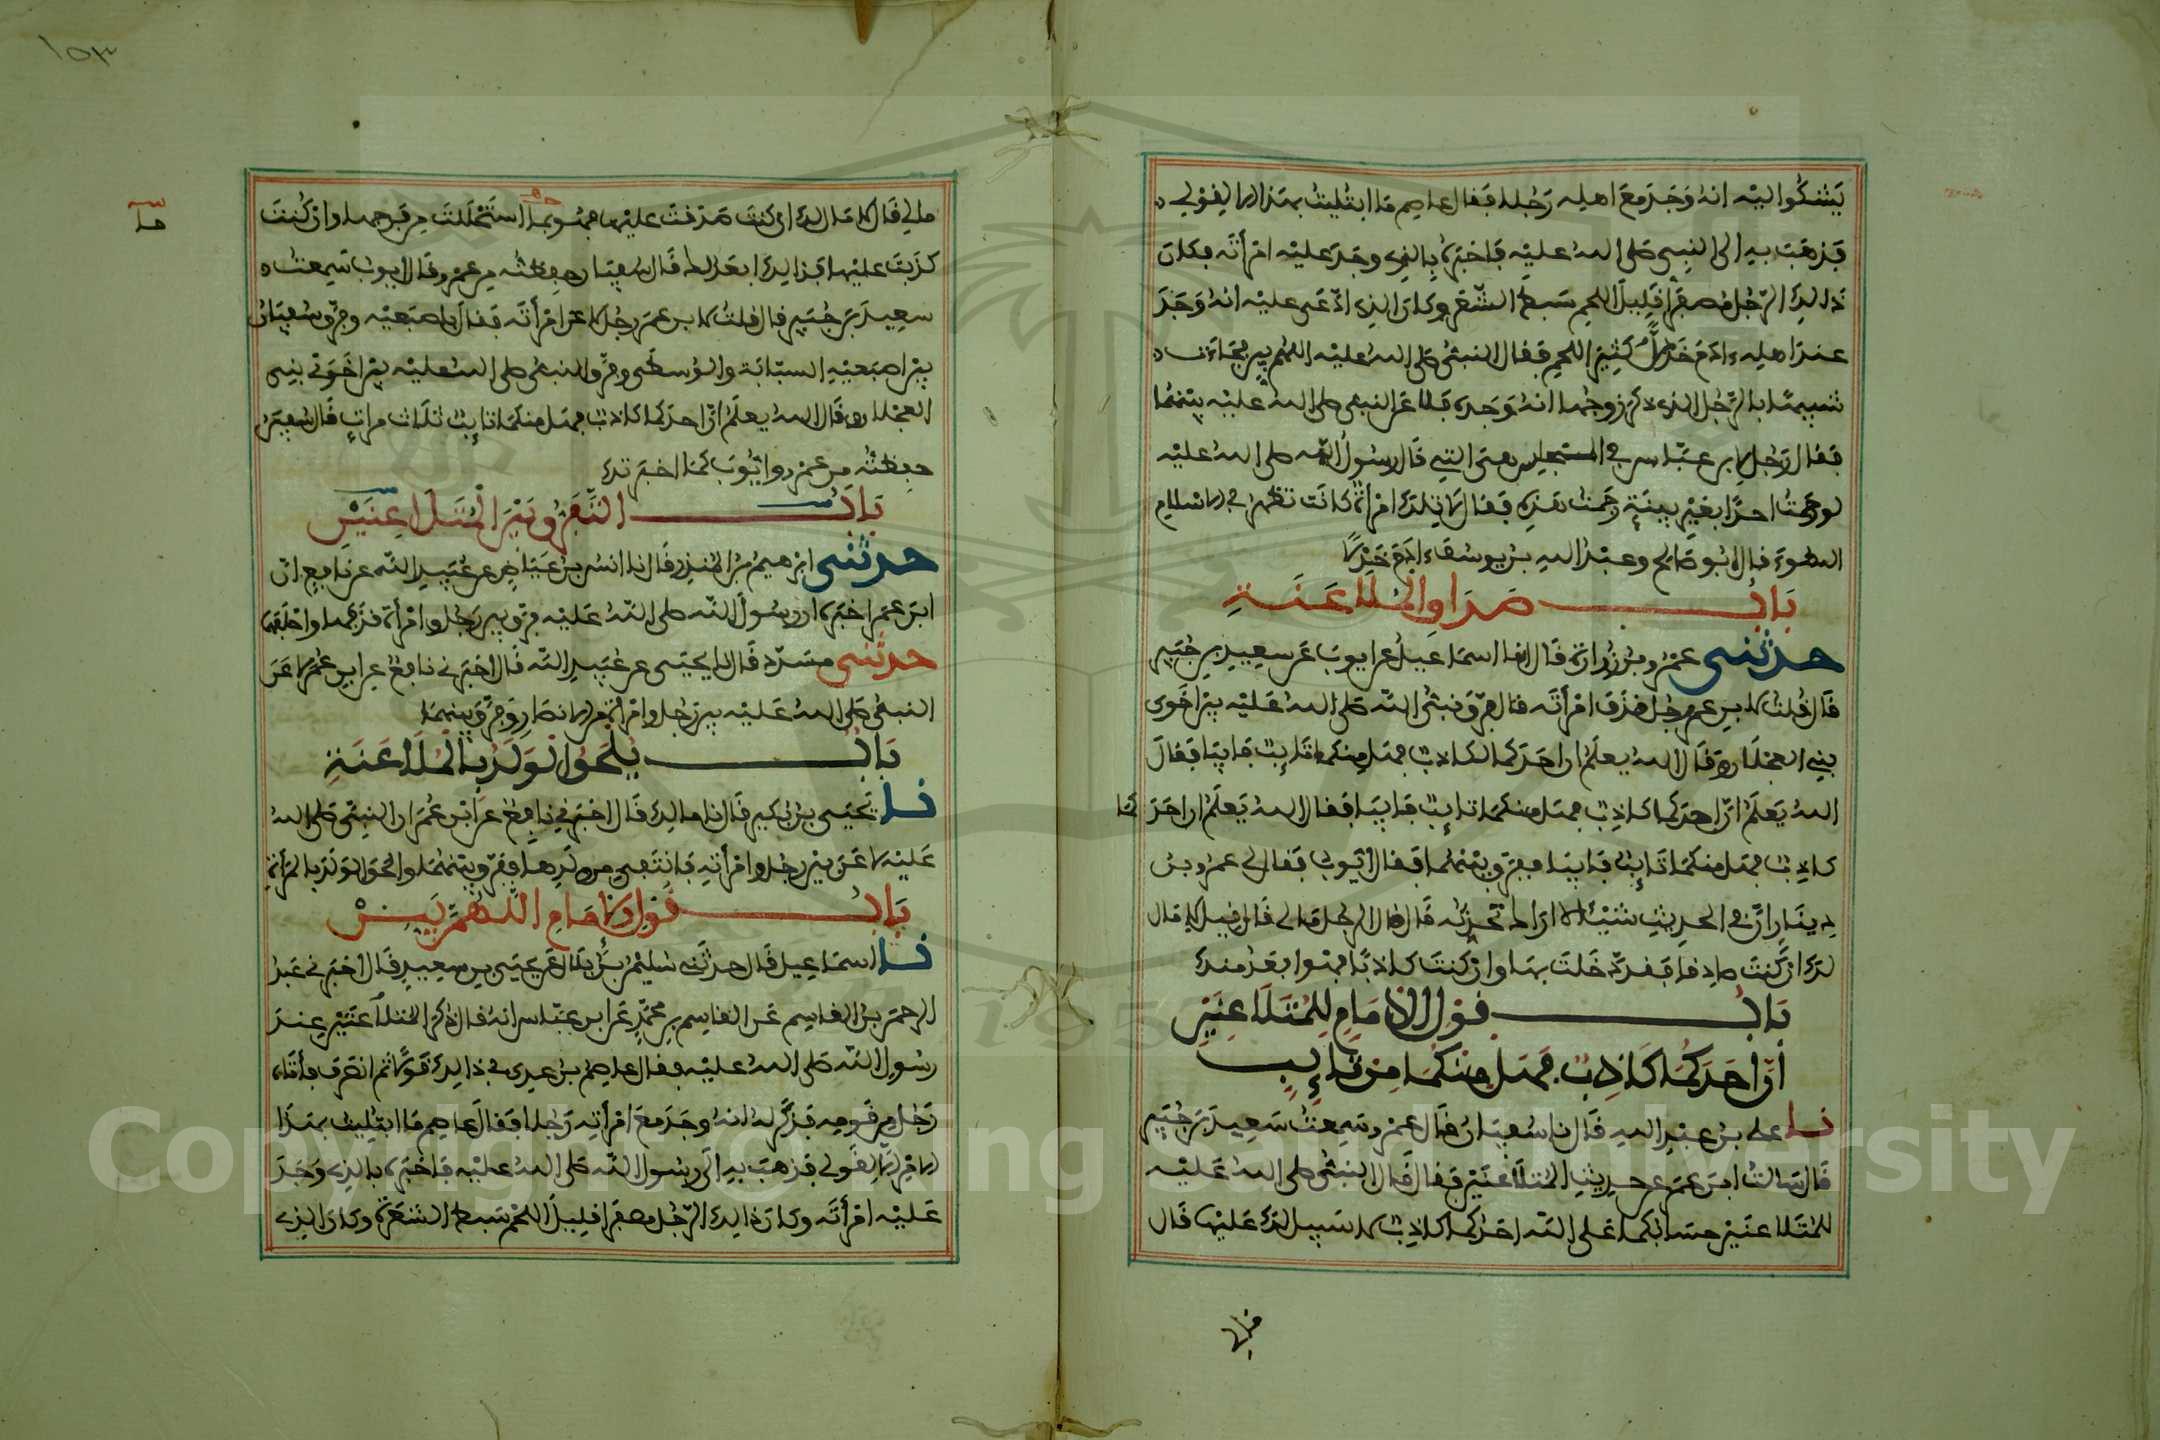 يشكوا اليه انه وجد مع اهله رجلا فقال عاصم ما ابتليت بهذا الا لقولي
فذهب به الى النبي صلى الله عليه فاخبره بالذي وجد عليه امرأته فكان
ذالك الرجل مصفرا قليل اللحم سبط الشعر وكان الذي ادعى عليه انه وجد
عند اهله ءادم خدلا كثير اللحم فقال النبي صلى الله عليه اللهم بين فجاءت
شبيها بالرجل الذي ذكر زوجها انه وجده فلاعن النبي صلى الله عليه بينهما
فقال رجل لابن عباس في المجلس هي التي قال رسول الله صلى الله عليه
لو رجمت احدا بغير بينة رجمت هذه فقال لا تلك امرأة كانت تظهر في الاسلام
السوء قال ابو صالح وعبد الله بن يوسف ءادم خدلا
باب صداق الملاعنة
حدثني عمرو بن زرارة قال انا اسماعيل عن ايوب عن سعيد بن جبير
قال قلت لابن عمر رجل قذف امرأته قال فرق نبي الله صلى الله عليه بين اخوي
بني العجلان وقال الله يعلم ان احدكما لكاذب فهل منكما تايب فابيا فقال
الله يعلم ان احدكما كاذب فهل منكما تايب فابيا فقال الله يعلم ان احدكما
كاذب فهل منكما تايب فابيا ففرق بينهما قال ايوب فقال لي عمرو بن
دينار ان في الحديث شيئا لا اراك تحدثه قال قال الرجل مالي قال قيل لا مال
لك ان كنت صادقا فقد دخلت بها وان كنت كاذبا فهو ابعد منك
باب قول الامام للمتلاعنين
ان احدكما كاذب فهل منكما من تايب
نا علي بن عبد الله قال نا سفيان قال عمرو سمعت سعيد بن جبير
قال سالت ابن عمر عن حديث المتلاعنين فقال قال النبي صلى الله عليه
للمتلاعنين حسابكما على الله احدكما كاذب لا سبيل لك عليها قال
مالي
١٥٣
مالي قال لا مال لك ان كنت صدقت عليها فهو بما استحللت من فرجها وان كنت
كذبت عليها فذالك ابعد لك قال سفيان حفظته من عمرو وقال ايوب سمعت
سعيد بن جبير قال قلت لابن عمر رجل لاعن امرأته فقال باصبعيه وفرق سفيان
بين اصبعيه السبابة والوسطى وفرق النبي صلى الله عليه بين اخوي بني
العجلان وقال الله يعلم ان احدكما كاذب فهل منكما تايب ثلاث مرات قال سفين
حفظته من عمرو وايوب كما اخبرتك
باب التفريق بين المتلاعنين
حدثني ابرهيم بن المنذر قال نا انس بن عياض عن عبيد الله عن نافع ان
ابن عمر اخبره ان رسول الله صلى الله عليه فرق بين رجل وامرأة قذفها واحلفهما
حدثني مسدد قال نا يحيى عن عبيد الله قال اخبرني نافع عن ابن عمر لاعن
النبي صلى الله عليه بين رجل وامرأة من الانصار وفرق بينهما
باب يلحق الولد بالملاعنة
نا يحيى بن بكير قال نا مالك قال اخبرني نافع عن ابن عمر ان النبي صلى الله
عليه لاعن بين رجل وامرأته فانتفى من ولدها ففرق بينهما والحق الولد بالمرأة
باب قول الامام اللهم بين
نا اسماعيل قال حدثني سليمن بن بلال عن يحيى بن سعيد قال اخبرني عبد
الرحمن بن القاسم عن القاسم بن محمد عن ابن عباس انه قال ذكر المتلاعنين عند
رسول الله صلى الله عليه فقال عاصم بن عدي في ذالك قولا ثم انصرف فأتاه
رجل من قومه فذكر له انه وجد مع امرأته رجلا فقال عاصم ما ابتليت بهذا
الامر الا لقولي فذهب به الى رسول الله صلى الله عليه فاخبره بالذي وجد
عليه امرأته وكان ذالك الرجل مصفرا قليل اللحم سبط الشعرة وكان الذي
Copyright © King Saud University
1957